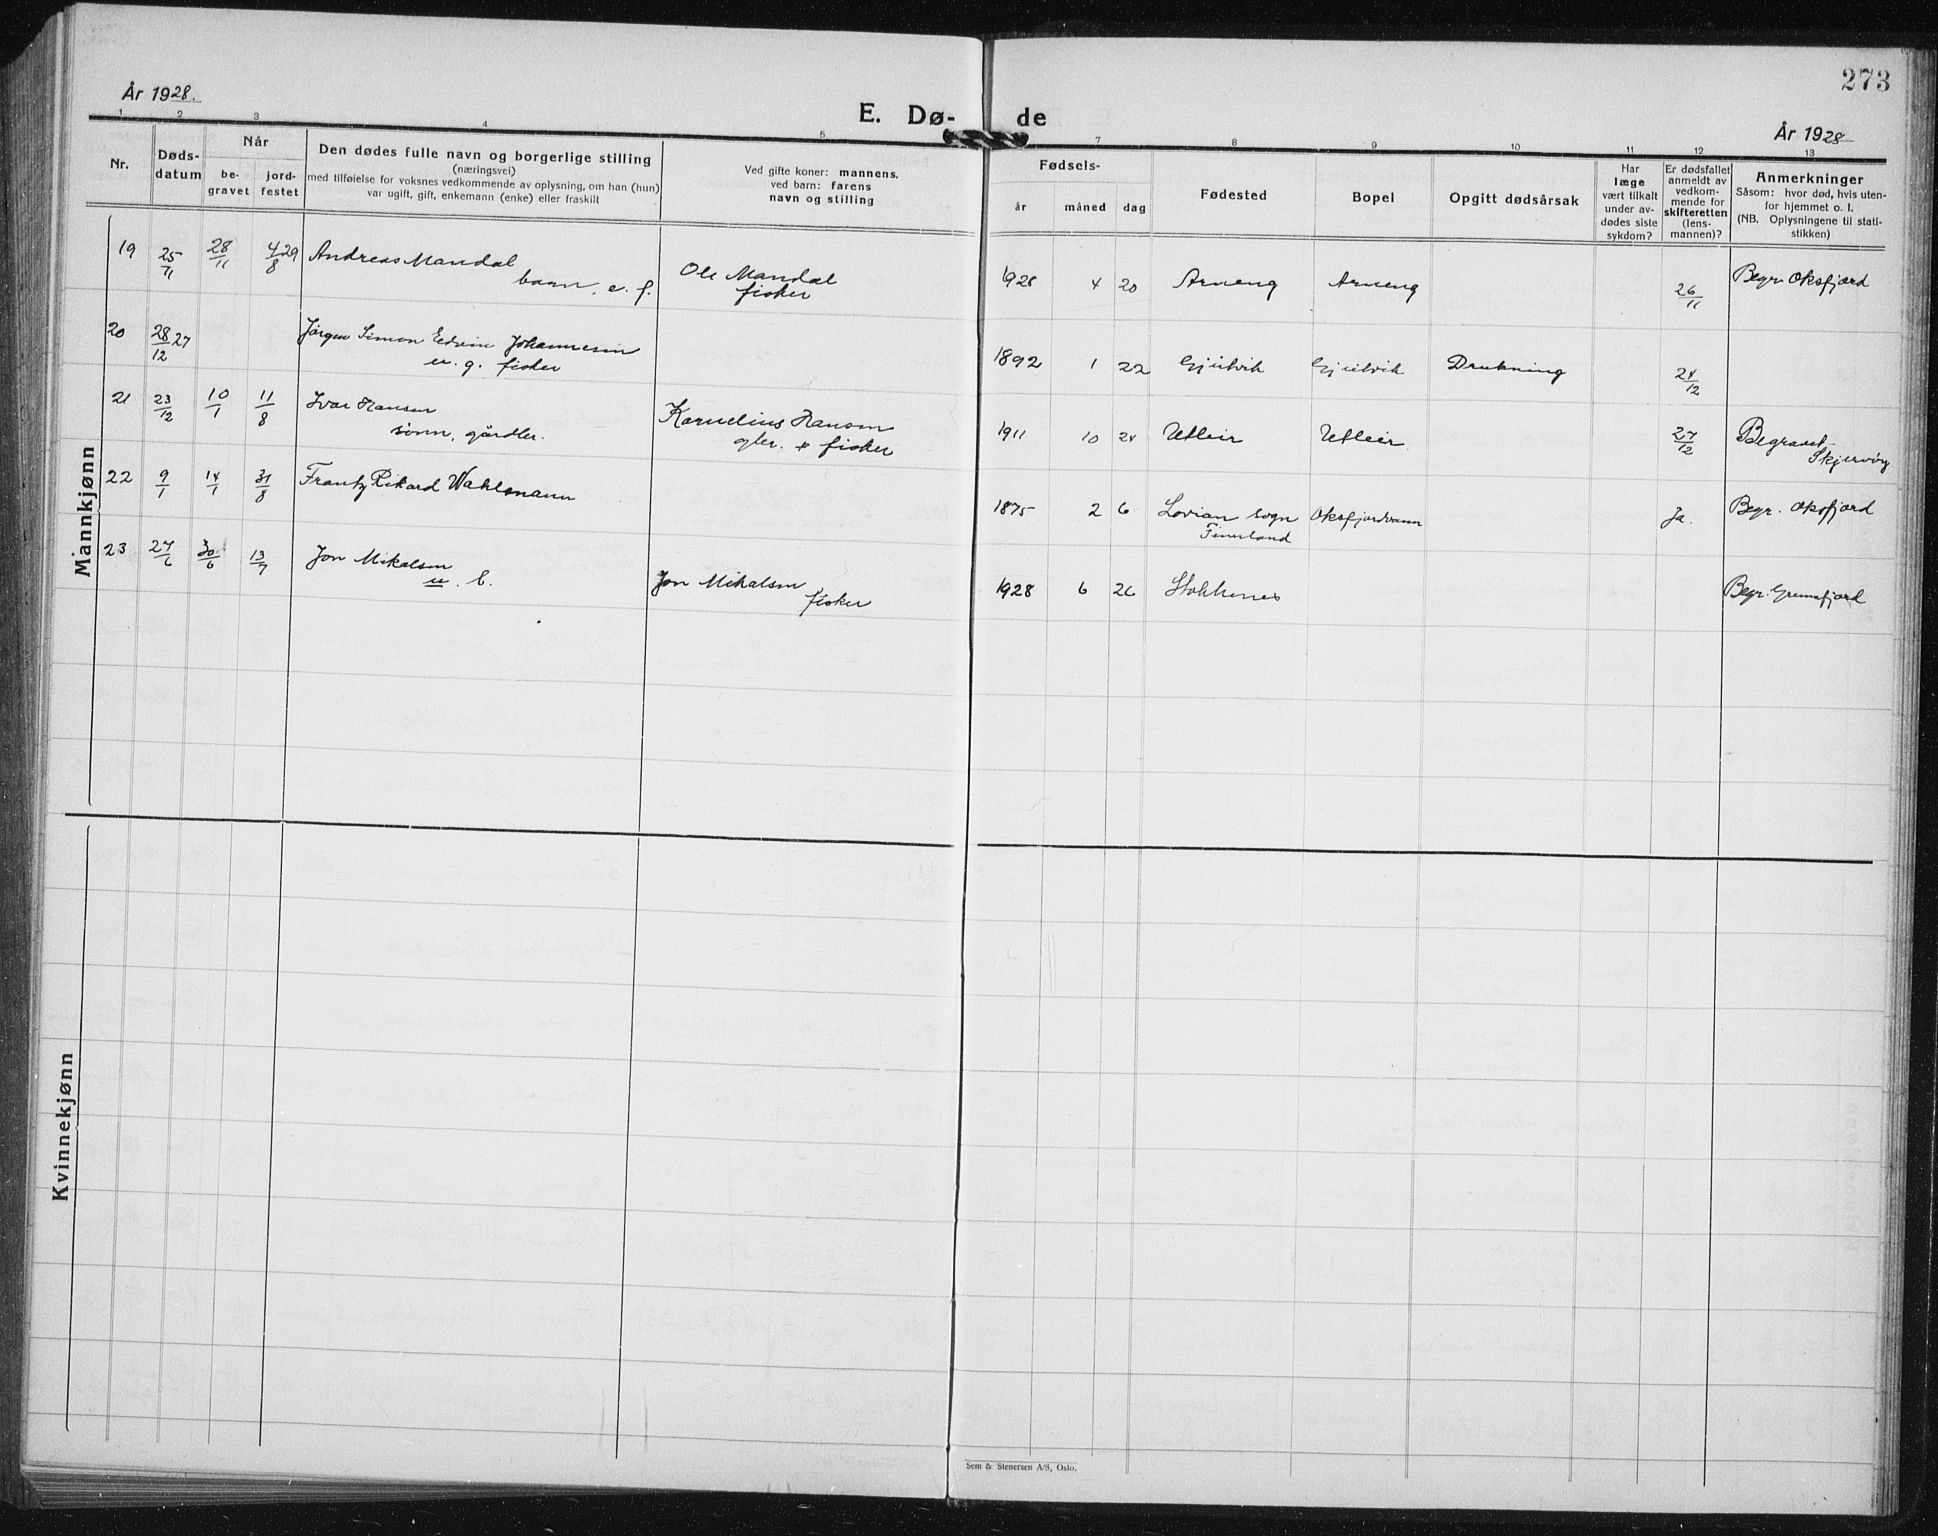 273
År 1928.
E. Dø- de
År 1928
1 2 3 4 5 7 8 9 10 11 12 13
Nr.
Døds-
datum
Når
be-
gravet
jord-
festet
Den dødes fulle navn og borgerlige stilling
(næringsvei)
med tilføielse for voksnes vedkommende av oplysning, om han (hun)
var ugift, gift, enkemann (enke) eller fraskilt
Ved gifte koner: mannens,
ved barn: farens
navn og stilling
Fødsels-
år måned dag
Fødested
Bopel
Opgitt dødsårsak
Har
læge
vært tilkalt
under av-
dødes siste
sykdom?
Er dødsfallet
anmeldt av
vedkom-
mende for
skifteretten
(lens-
mannen)?
Anmerkninger
Såsom: hvor død, hvis uten-
for hjemmet o. l.
(NB. Oplysningene til stati-
stikken)
Mannkjønn
19 25/11 28/11 4/8 29 Andreas Mandal Ole Mandal 1928 4 20 Arneng Arneng 26/11 Begr. Oksfjord
barn, e. f. fisker
20 28/12 27 Jørgen Simon Edvin Johannesen 1892 1 22 Gjøvik Drukning 24/12
u. g. fisker
21 23/12 10/1 11/8 Ivar Hansen Kornelius Hansen 1911 10 24 Utleir Utleir 27/12 Begravet
sønn, gårdbr. fisker Skjervøy
22 9/1 14/1 31/8 Frantz Rikard Wahlsmann 1875 2 6 Lovian sogn Oksfjordvann Ja. Begr. Oksfjord
Finnland
23 27/6 30/6 13/7 Jon Mikalsen Jon Mikalsen 1928 6 26 Stokkenes Begr.
u. b. fisker
Kvinnekjønn
Sem & Stenersen A/S, Oslo.